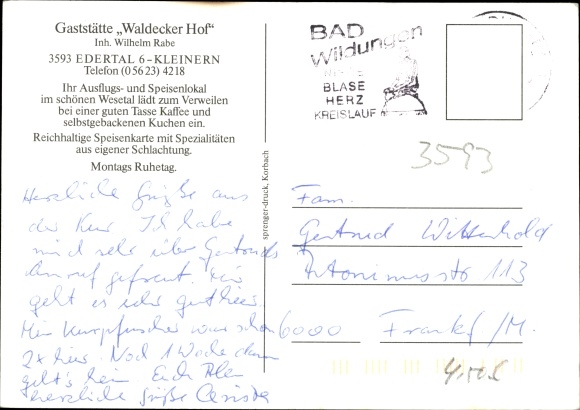 Gaststätte „Waldecker Hof“
Inh. Wilhelm Rabe
3593 EDERTAL 6 - KLEINERN
Telefon (0 56 23) 4218
Ihr Ausflugs- und Speisenlokal
im schönen Wesetal lädt zum Verweilen
bei einer guten Tasse Kaffee und
selbstgebackenen Kuchen ein.
Reichhaltige Speisenkarte mit Spezialitäten
aus eigener Schlachtung.
Montags Ruhetag.
Herzliche Grüße aus
der Kur. Ich habe
mich sehr über Gertruds
Anruf gefreut. Mir
geht es sehr gut hier.
Mein Kurpfuscher war schon
2x hier. Noch 1 Woche dann
geht's heim. Euch Allen
herzliche Grüße Christa
sprenger-druck, Korbach
BAD
Wildungen
NIERE
BLASE
HERZ
KREISLAUF
3593
Fam.
Gertrud Wittenhold
Antoniusstr 113
6000 Frankf/M.